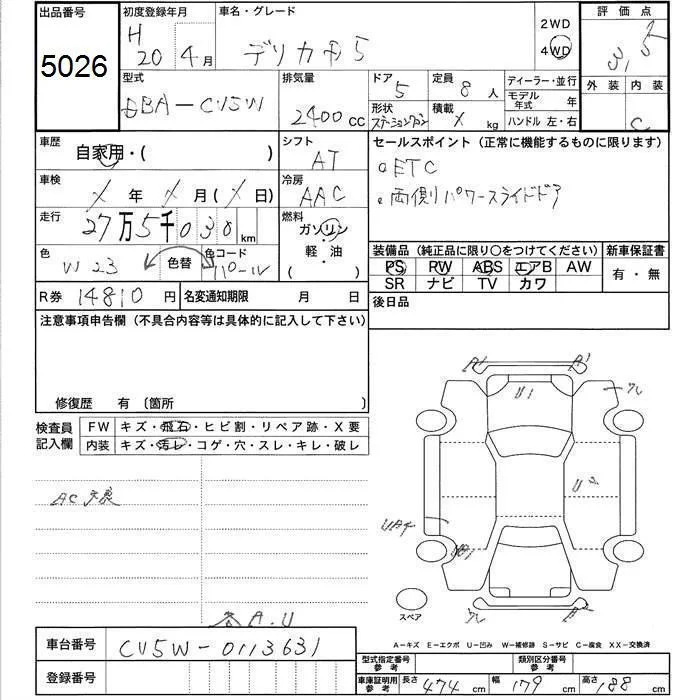 出品番号 初度登録年月 車名・グレード 2WD 評価点
5026 H 20 4月 デリカD5 4WD 3.5
型式 排気量 ドア 定員 ディーラー・並行 外装 内装
DBA-CV5W 2400cc 5 8人 モデル年式 年 C
形状 ステーションワゴン 積載 kg ハンドル 左・右
車歴 自家用・( ) シフト AT セールスポイント (正常に機能するものに限ります)
車検 年 月( 日) 冷房 AAC 。ETC
走行 27万5千030km 燃料 ガソリン 。両側パワースライドドア
軽・油
( )
色 W23 色替 色コード 装備品 (純正品に限り〇をつけてください) 新車保証書
PS PW ABS エアB AW 有・無
SR ナビ TV カワ
R券 14810円 名変通知期限 月 日 後日品
注意事項申告欄 (不具合内容等は具体的に記入して下さい)
修復歴 有 〔箇所
検査員記入欄 FW キズ・飛石・ヒビ割・リペア跡・X要
内装 キズ・汚レ・コゲ・穴・スレ・キレ・破レ
A1 A1
U1
U2
スペア
A.U
A-キズ E-エクボ U-凹み W-補修跡 S-サビ C-腐食 XX-交換済
車台番号 CV5W-0113631
登録番号
型式指定番号 参考 類別区分番号 参考
車庫証明用 参考 長さ 474cm 幅 179cm 高さ 188cm